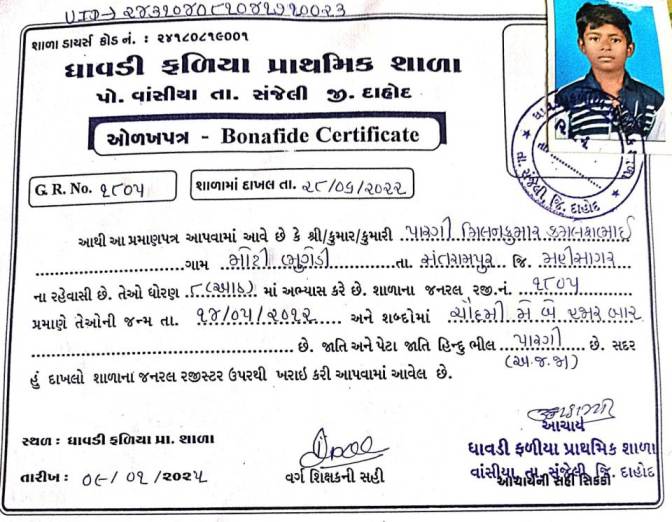 UID → ૨૪૩૧૦૪૦૮૧૦૪૧૭૧૦૦૨૩
શાળા ડાયર્સ કોડ નં. : ૨૪૧૮૦૮૧૯૦૦૧
ધાવડી ફળિયા પ્રાથમિક શાળા
પો. વાંસીયા તા. સંજેલી જી. દાહોદ
ઓળખપત્ર - Bonafide Certificate
G.R. No. ૧૮૦૫ શાળામાં દાખલ તા. ૨૮/૦૬/૨૦૨૨
આથી આ પ્રમાણપત્ર આપવામાં આવે છે કે શ્રી/કુમાર/કુમારી પારગી મિલનકુમાર કમલકાભાઈ
ગામ મોટી ભુગેડી તા. સંતરામપુર જિ. મહીસાગર
ના રહેવાસી છે. તેઓ ધોરણ ૮ (આઠ) માં અભ્યાસ કરે છે. શાળાના જનરલ રજી.નં. ૧૮૦૫
પ્રમાણે તેઓની જન્મ તા. ૧૪/૦૫/૨૦૧૨ અને શબ્દોમાં ચૌદમી મે બે હજાર બાર
છે. જાતિ અને પેટા જાતિ હિન્દુ ભીલ પારગી છે. સદર
(અ.જ.જા)
હું દાખલો શાળાના જનરલ રજીસ્ટર ઉપરથી ખરાઇ કરી આપવામાં આવેલ છે.
આચાર્ય
સ્થળ : ધાવડી ફળિયા પ્રા. શાળા
ધાવડી ફળીયા પ્રાથમિક શાળા
વાંસીયા તા. સંજેલી જિ. દાહોદ
તારીખ : ૦૯/૦૧/૨૦૨૫ વર્ગ શિક્ષકની સહી આચાર્યની સહી સિક્કો
તા. સંજેલી જિ. દાહોદ